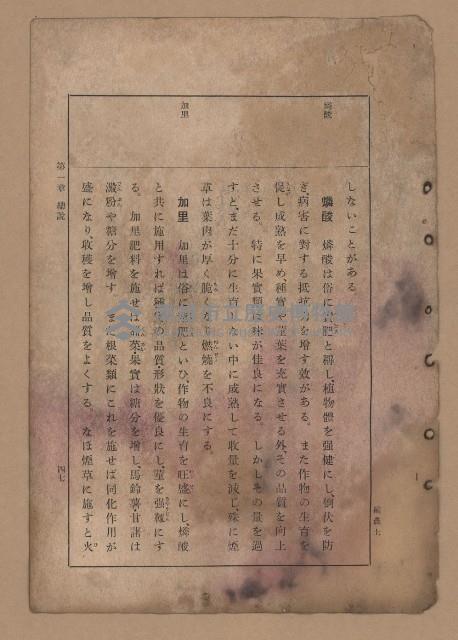 燐酸
加里
しないことがある。
燐酸 燐酸は俗に實肥と稱し、植物體を強健にし、倒伏を防
ぎ、病害に對する抵抗力を増す效がある。また作物の生育を
促し成熟を早め、種實や莖葉を充實させる外、その品質を向上
させる。特に果實類の味が佳良になる。しかしその量を過
すと、まだ十分に生育しない中に成熟して收量を減じ、殊に煙
草は葉肉が厚く脆くなり燃燒を不良にする。
加里 加里は俗に 肥といひ、作物の生育を旺盛にし、燐酸
と共に施用すれば種實の品質形狀を優良にし、莖を強靱にす
る。加里肥料を施せば蔬菜、果實は糖分を増し、馬鈴薯甘藷は
澱粉や糖分を増す。 根菜類にこれを施せば同化作用が
盛になり、收穫を増し品質をよくする。なほ煙草に施すと火
第一章 總說
四七